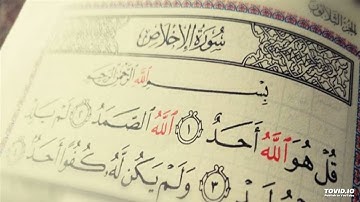 سُورَةُ الإِخْلَاصِ
بِسْمِ اللَّهِ الرَّحْمَٰنِ الرَّحِيمِ
قُلْ هُوَ اللَّهُ أَحَدٌ ١ اللَّهُ الصَّمَدُ ٢ لَمْ يَلِدْ
٣ وَلَمْ يَكُن لَّهُ كُفُوًا أَحَدٌ
TOVID.IO